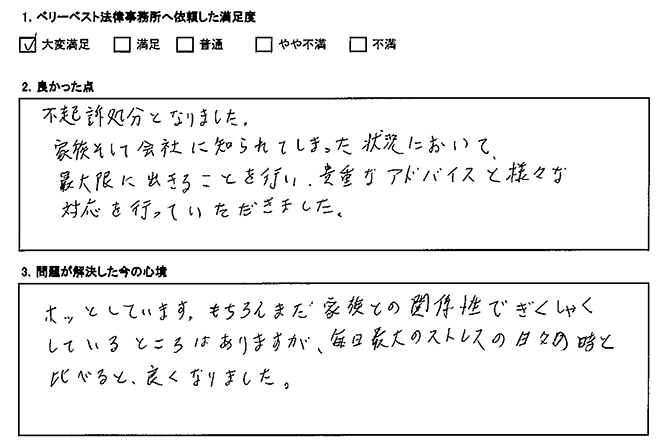 1. ベリーベスト法律事務所へ依頼した満足度
☑ 大変満足 □ 満足 □ 普通 □ やや不満 □ 不満
2. 良かった点
不起訴処分となりました。
家族そして会社に知られてしまった状況において、
最大限に出きることを行い、貴重なアドバイスと様々な
対応を行っていただきました。
3. 問題が解決した今の心境
ホッとしています。もちろんまだ家族との関係性でぎくしゃく
しているところはありますが、毎日最大のストレスの日々の時と
比べると、良くなりました。